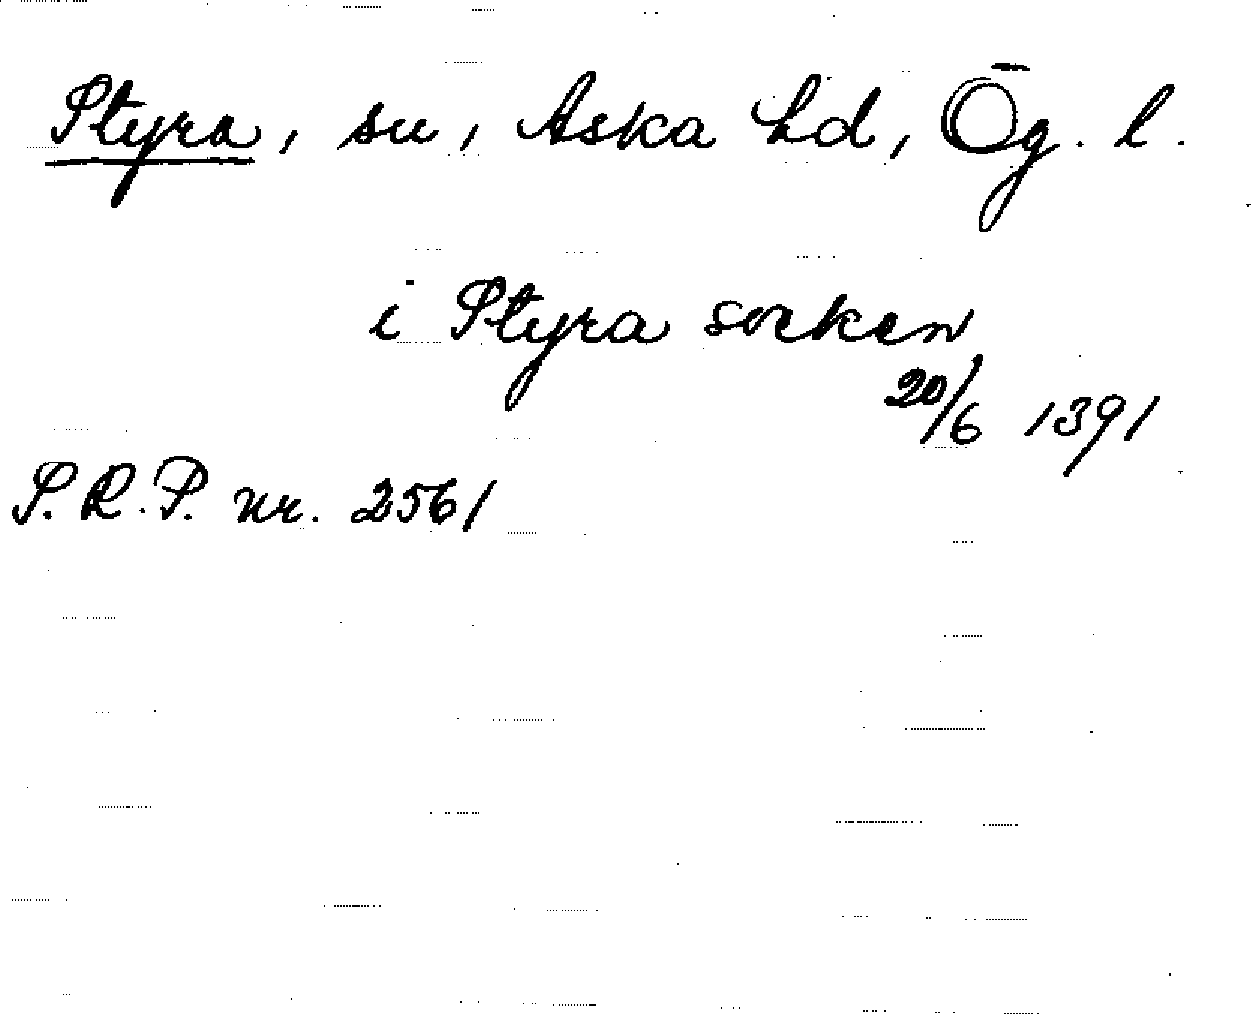 Styra, sn, Aska hd, Ög. l.
i Styra socken
20/6 1391
S.R.P. nr. 2561